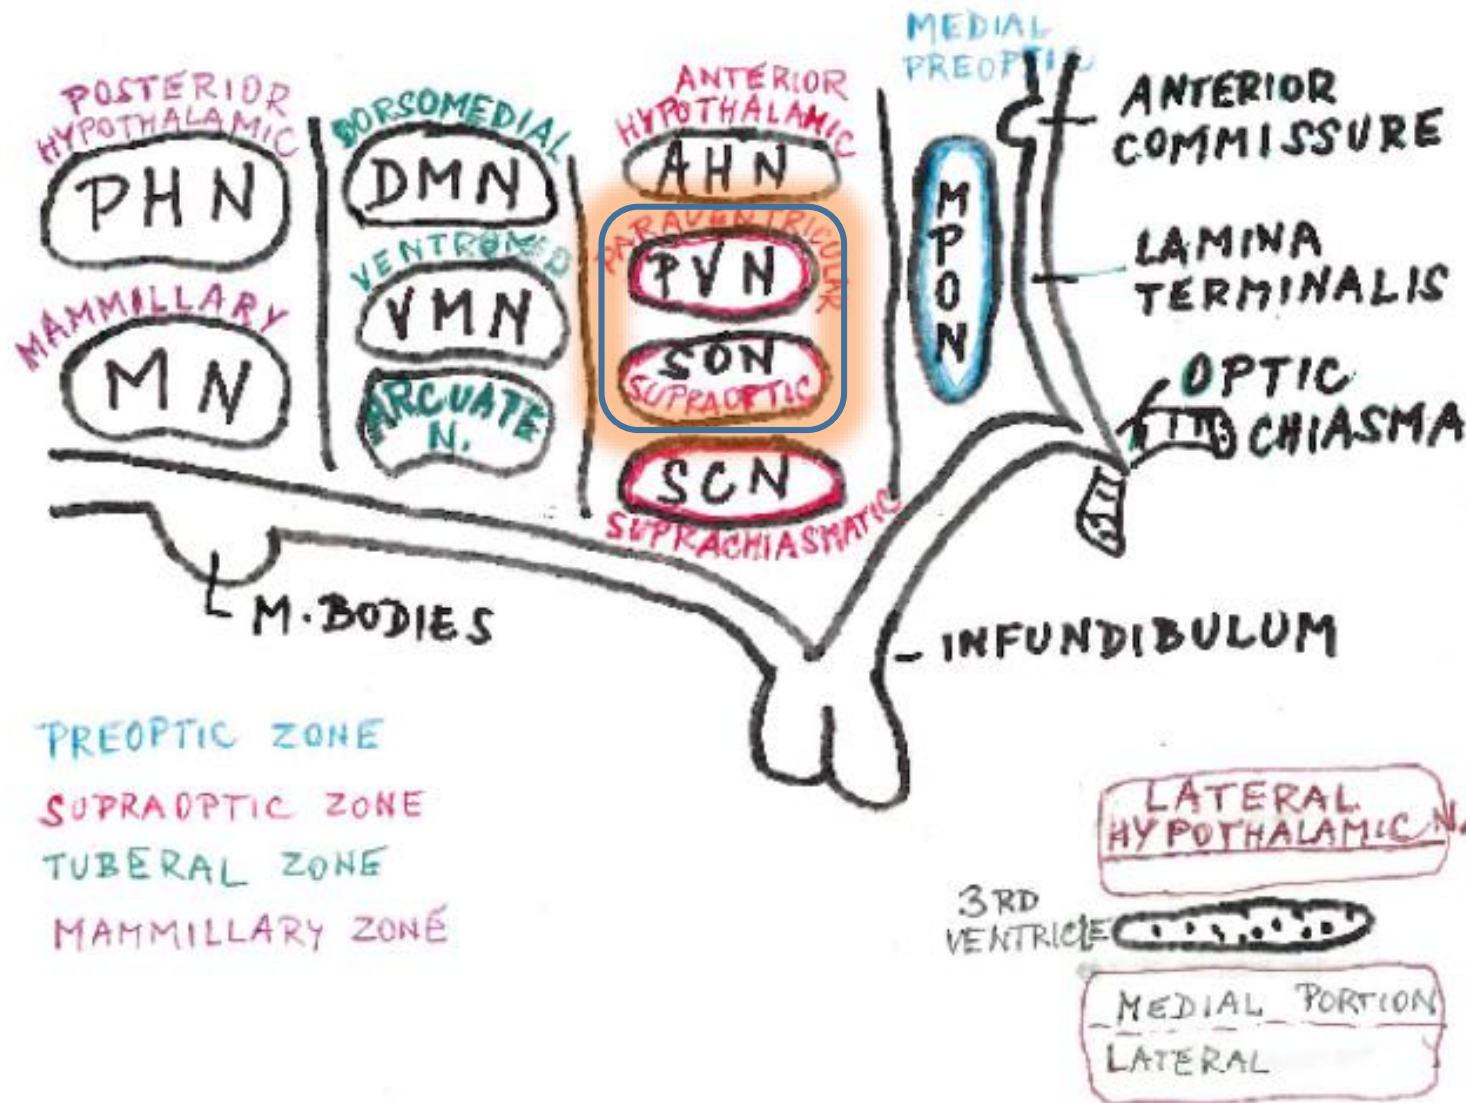 MEDIAL
PREOPTIC
POSTERIOR
HYPOTHALAMIC
PHN
MAMMILLARY
MN
DORSOMEDIAL
DMN
VENTROMED
VMN
ARCUATE
N.
ANTERIOR
HYPOTHALAMIC
AHN
PARAVENTRICULAR
PVN
SON
SUPRAOPTIC
SCN
SUPRACHIASMATIC
MPON
ANTERIOR
COMMISSURE
LAMINA
TERMINALIS
OPTIC
CHIASMA
M. BODIES
INFUNDIBULUM
PREOPTIC ZONE
SUPRAOPTIC ZONE
TUBERAL ZONE
MAMMILLARY ZONE
LATERAL
HYPOTHALAMIC N.
3RD
VENTRICLE
MEDIAL PORTION
LATERAL